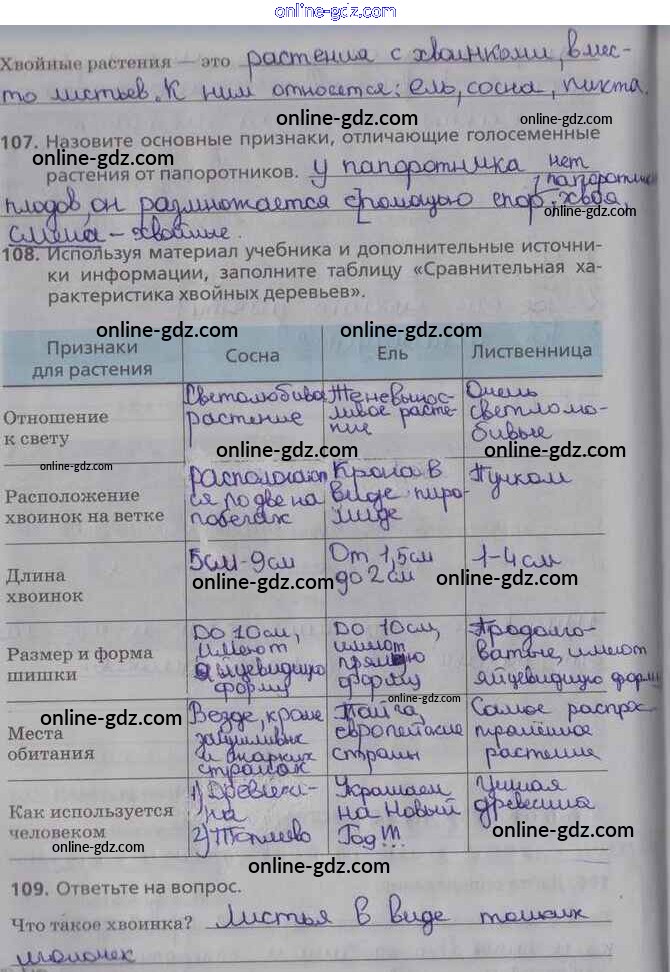 online-gdz.com
Хвойные растения — это растения с хвоинками, вмес-
то листьев. К ним относется: ель, сосна, пихта.
online-gdz.com online-gdz.com
107. Назовите основные признаки, отличающие голосеменные
online-gdz.com online-gdz.com
растения от папоротников. У папоротника нет
плодов, он размножается с помощью спор.
online-gdz.com online-gdz.com
108. Используя материал учебника и дополнительные источни-
ки информации, заполните таблицу «Сравнительная ха-
рактеристика хвойных деревьев».
online-gdz.com online-gdz.com
Признаки для растения Сосна Ель Лиственница
Отношение к свету Светолюбивое растение Теневынос-ливое расте-ние Очень светолюбивые
online-gdz.com online-gdz.com online-gdz.com
Расположение хвоинок на ветке располагаются по две на побегах Крона в виде пиромиде Пучком
Длина хвоинок 5см-9см От 1,5см до 2см 1-4см
online-gdz.com online-gdz.com
Размер и форма шишки До 10см, имеют яйцевидную форму До 10см, имеют прямую форму Продолговатые, имеют яйцевидную форму
online-gdz.com online-gdz.com online-gdz.com
Места обитания Везде, кроме засушливых и жарких странах Тайга, европейские страны Самое распространённое растение
Как используется человеком 1) Древеси-на 2) Топливо Украшаем на Новый Год!!! Ценная древесина
online-gdz.com online-gdz.com
online-gdz.com online-gdz.com
109. Ответьте на вопрос.
online-gdz.com online-gdz.com
Что такое хвоинка? Листья в виде тонких
иголочек